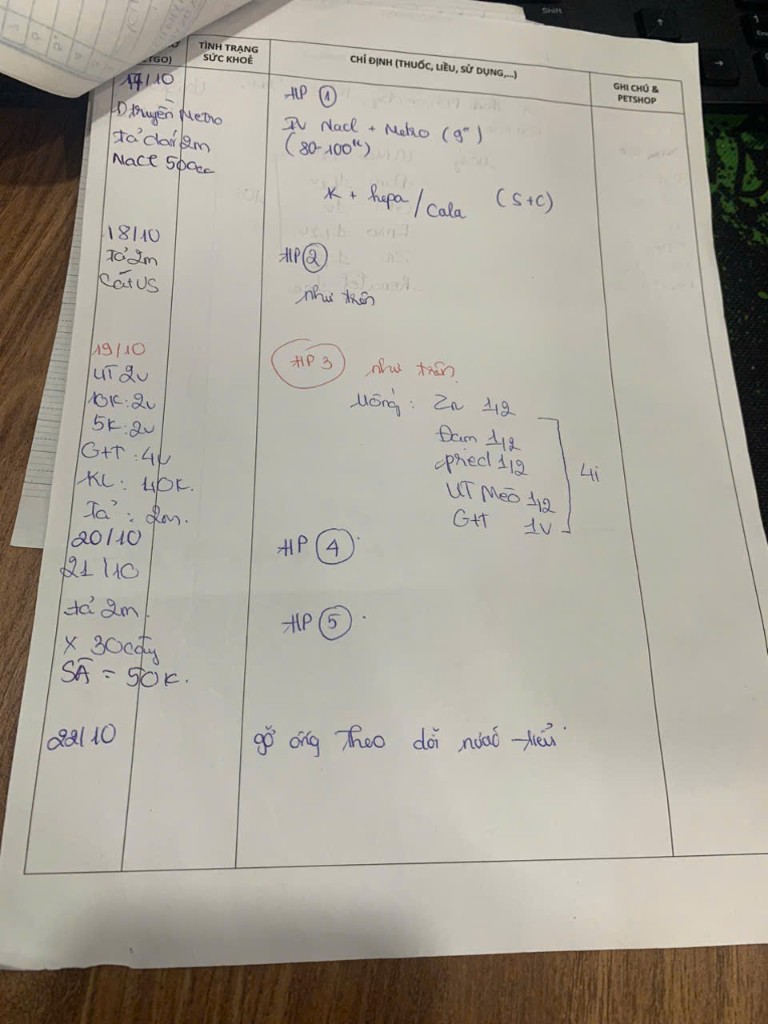 TÌNH TRẠNG SỨC KHOẺ
CHỈ ĐỊNH (THUỐC, LIỀU, SỬ DỤNG,...)
GHI CHÚ & PETSHOP
17/10
D.truyền Metro
Tả dán 2m
NaCl 500cc
HP 1
IV Nacl + Metro (9")
(80-100")
K + hepa / Cala (S+C)
18/10
Tả 2m
Cát US
HP 2
như trên
19/10
UT 2v
10K: 2v
5K: 2v
G+T: 4v
KL: 40K.
Tả: 2m.
HP 3 như trên
Uống: Zn 1/2
Đam 1/2
pred 1/2
UT Mèo 1/2
G+T 1v
4i
20/10
HP 4
21/10
tả 2m.
x 30
SÂ = 50K.
HP 5
22/10
gỡ ống Theo dõi nước tiểu